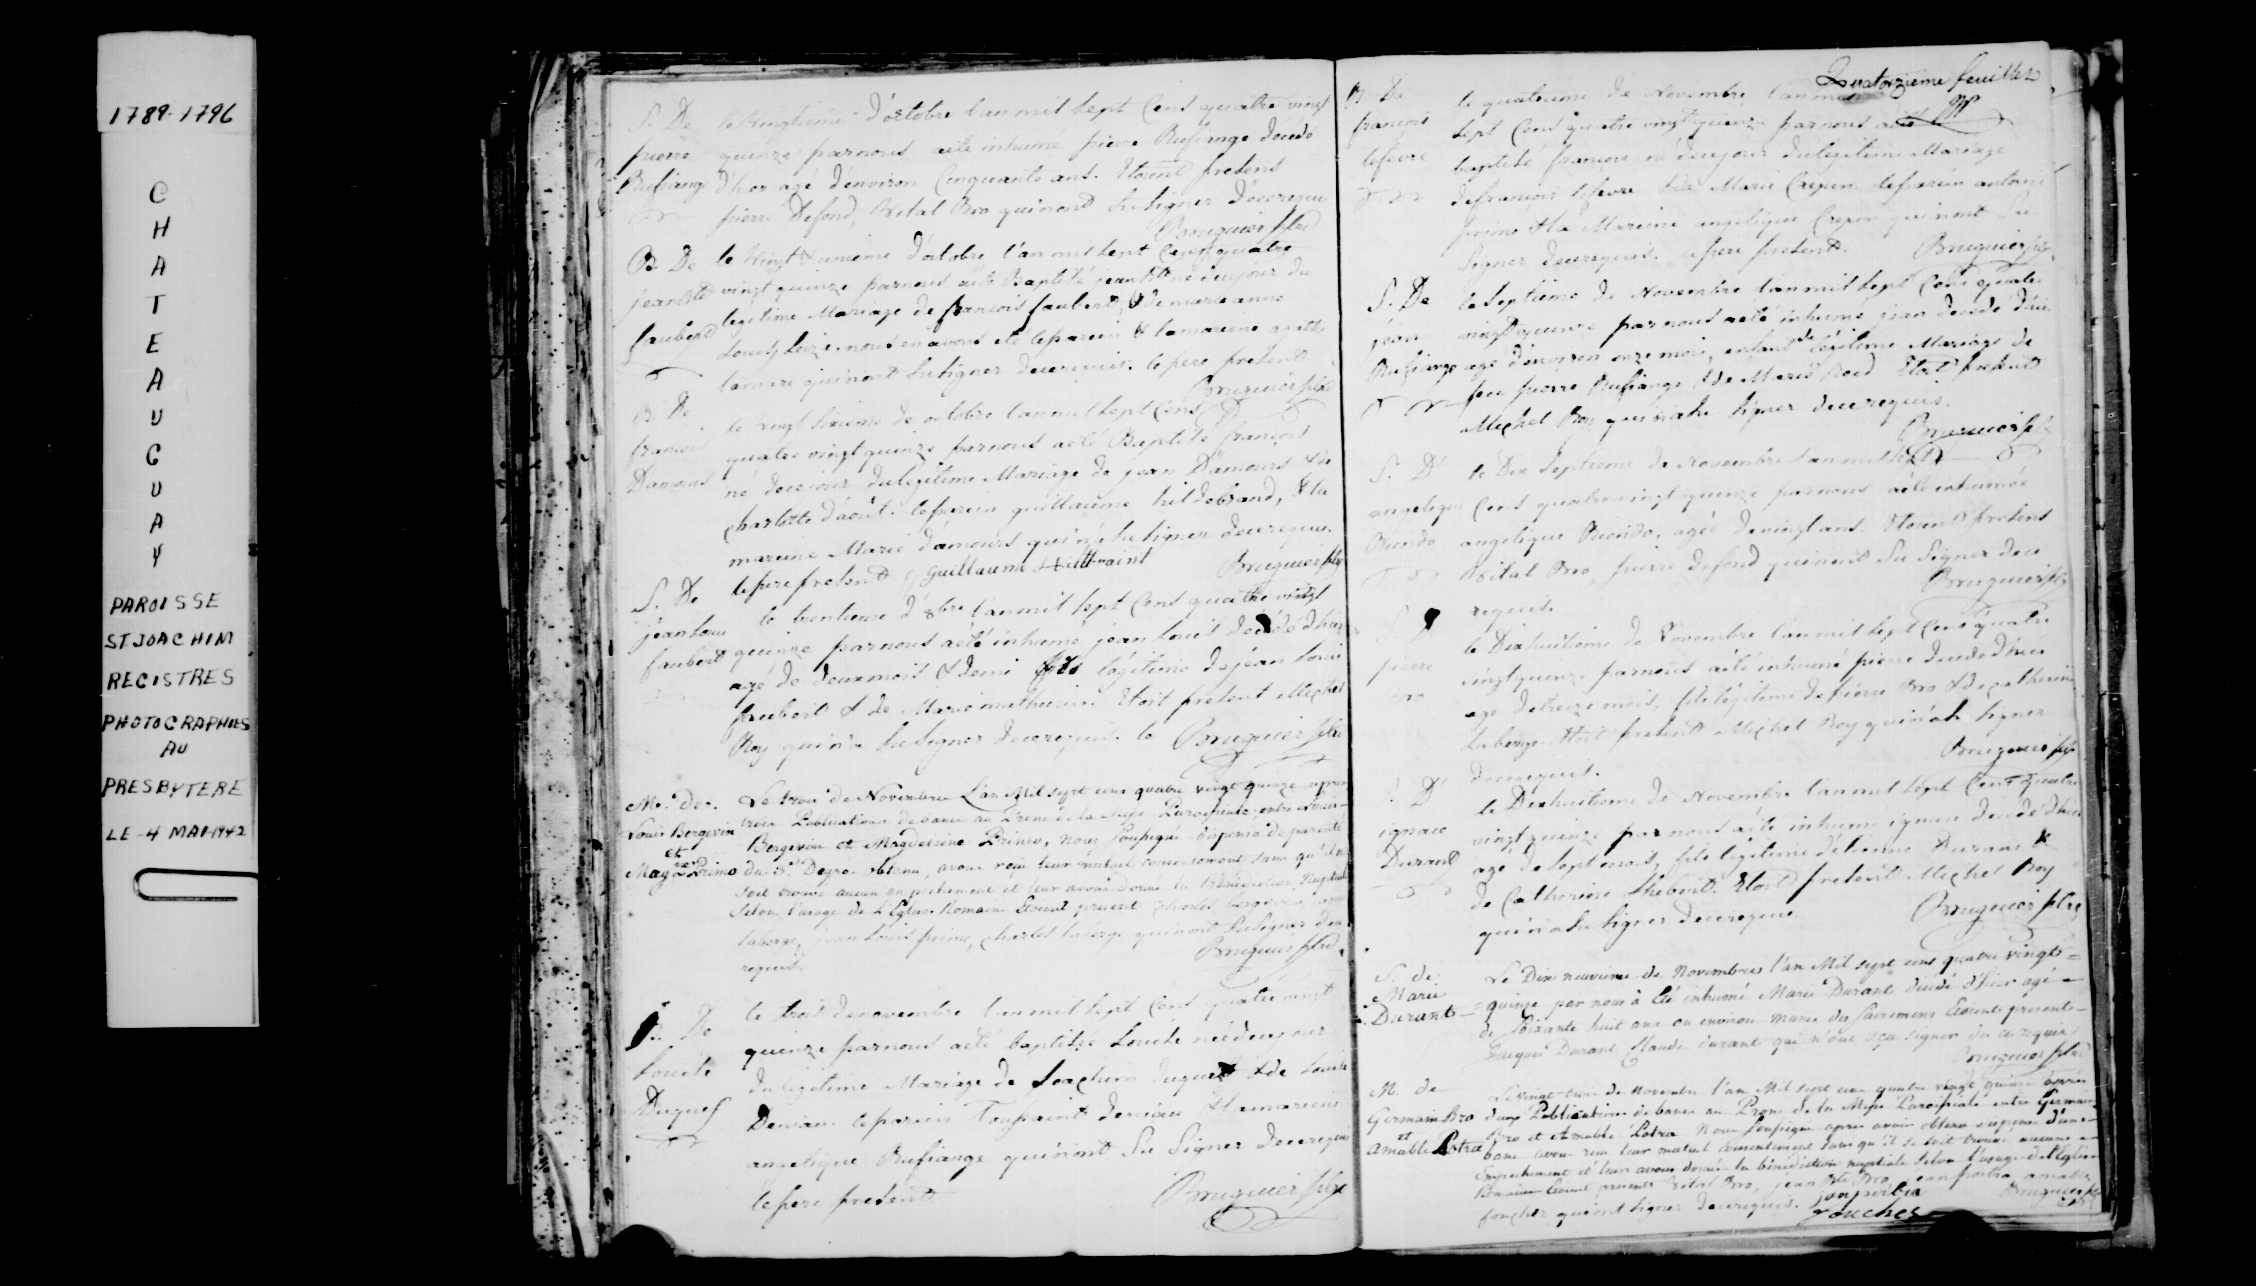 1789-1796
C
H
A
T
E
A
U
G
U
A
Y
PAROISSE
ST JOACHIM
REGISTRES
PHOTOGRAPHIES
AU
PRESBYTERE
LE 4 MAI 1942
S. De
pierre
le vingtieme d'octobre l'an mil sept Cens quatre vingt
quinze par nous a eté inhumé pierre Rufiange decedé
d'hier agé d'environ Cinquante ans. Etoient presens
pierre Defond, Vital Bro qui n'ont su signer de ce requis
Bruguier ptre
B. De
jean Bte
faubert
le vingt unieme d'octobre l'an mil sept Cens quatre
vingt quinze par nous a eté Baptisé jean Bte né du jour du
legitime Mariage de françois faubert & de marie anne
qui n'ont su signer de ce requis. le pere present
Bruguier ptre
B. De
françois
Damours
le vingt sixieme de octobre l'an mil sept Cens
quatre vingt quinze par nous a eté Baptisé françois
né de ce jour du legitime Mariage de jean Damours & de
charlotte d'août. le parein guillaume hildebrand, & la
mareine Marie d'amours qui n'a su signer de ce requis.
le pere present Guillaume
Bruguier ptre
S. De
jean louis
faubert
le trentieme d'8bre l'an mil sept Cens quatre vingt
quinze par nous a eté inhumé jean louis decedé d'hier
agé de deux mois & demi fils légitime de jean louis
faubert & de Marie mathieu. Etoit present Michel
Roy qui n'a su signer de ce requis. Bruguier ptre
Mge. de
Louis Bergevin
et
Magne Primo
Le trois de Novembre L'an Mil sept cens quatre vingt quinze après
trois Publications de bancs au Prône de la Messe Paroissiale entre Louis
Bergevin et Magdeleine Primo, nous soussigné dispense de parenté
du 3e Degré obtenu, avons reçu leur mutuel consentement sans qu'il se
soit trouvé aucun empêchement et leur avons donné la Bénédiction Nuptiale
selon l'usage de l'Eglise Romaine Etoient present Charles bergevin,
laberge, jean Louis primo, charles laberge qui n'ont su signer de ce
requis.
Bruguier ptre
B. De
Louise
Duquet
le trois de novembre l'an mil sept Cens quatre vingt
quinze par nous a eté baptisée Louise née du jour
du legitime Mariage de Joachim duquet & de Louise
Deniau le parein Toupaint deniau & la mareine
angelique Rufiange qui n'ont su signer de ce requis
le pere present
Bruguier ptre
Quatorzieme feuillet
B. De
françois
lefevre
le quatrieme de Novembre l'an mil
sept Cens quatre vingt quinze par nous a eté
baptisé françois né de ce jour du legitime Mariage
de françois lefevre & de Marie Crepin le parein antoine
primo & la Mareine angelique Crepin qui n'ont su
signer de ce requis. le pere present. Bruguier ptre
S. De
jean
Rufiange
le septieme de Novembre l'an mil sept Cens quatre
vingt quinze par nous a eté inhumé jean decedé d'hier
agé d'environ onze mois, enfant de légitime Mariage de
feu pierre Rufiange & de Marie Roed Etoit present
Michel Roy qui n'a su signer de ce requis.
Bruguier ptre
S. D'
angelique
le Dix septieme de Novembre l'an mil sept
Cens quatre vingt quinze par nous a eté inhumée
angelique agée de vingt ans. Etoient presens
Vital Bro, pierre defond qui n'ont su signer de ce
requis.
Bruguier ptre
pierre
Bro
le Dixhuitieme de Novembre l'an mil sept Cens quatre
vingt quinze par nous a eté inhumé pierre decedé d'hier
agé de treize mois, fils légitime de pierre Bro & de catherine
laberge. Etoit present Michel Roy qui n'a su signer
de ce requis.
Bruguier ptre
S. D'
ignace
Durand
le Dixhuitieme de Novembre l'an mil sept Cens quatre
vingt quinze par nous a eté inhumé ignace decedé d'hier
agé de sept mois, fils légitime d'etienne Durand &
de Catherine hebert. Etoit present Michel Roy
qui n'a su signer de ce requis.
Bruguier ptre
S. de
Marie
Durant
Le Dix neuvieme de Novembre l'an Mil sept cens quatre vingts
quinze par nous à été inhumé Marie Durant decedé d'hier agé
de soixante huit ans ou environ munie des sacremens Etoient présents
Jacques Durant Claude durant qui n'ont sçu signer de ce requis
Bruguier ptre
M. de
Germain Bro
et
Amable Potra
Le vingt trois de Novembre l'an Mil sept cens quatre vingt quinze après
deux Publications de bancs au Prône de la Messe Paroissiale entre Germain
Bro et Amable Potra Nous soussigné après avoir obtenu dispense d'un
banc avons reçu leur mutuel consentement sans qu'il se soit trouvé aucun
Empêchement et leur avons donné la bénédiction nuptiale selon l'usage de l'Eglise
Romaine Etoient presents Vital Bro, jean Bte Bro, jean poitra, amable
foucher qui ont signer de ce requis.
foucher
Bruguier ptre